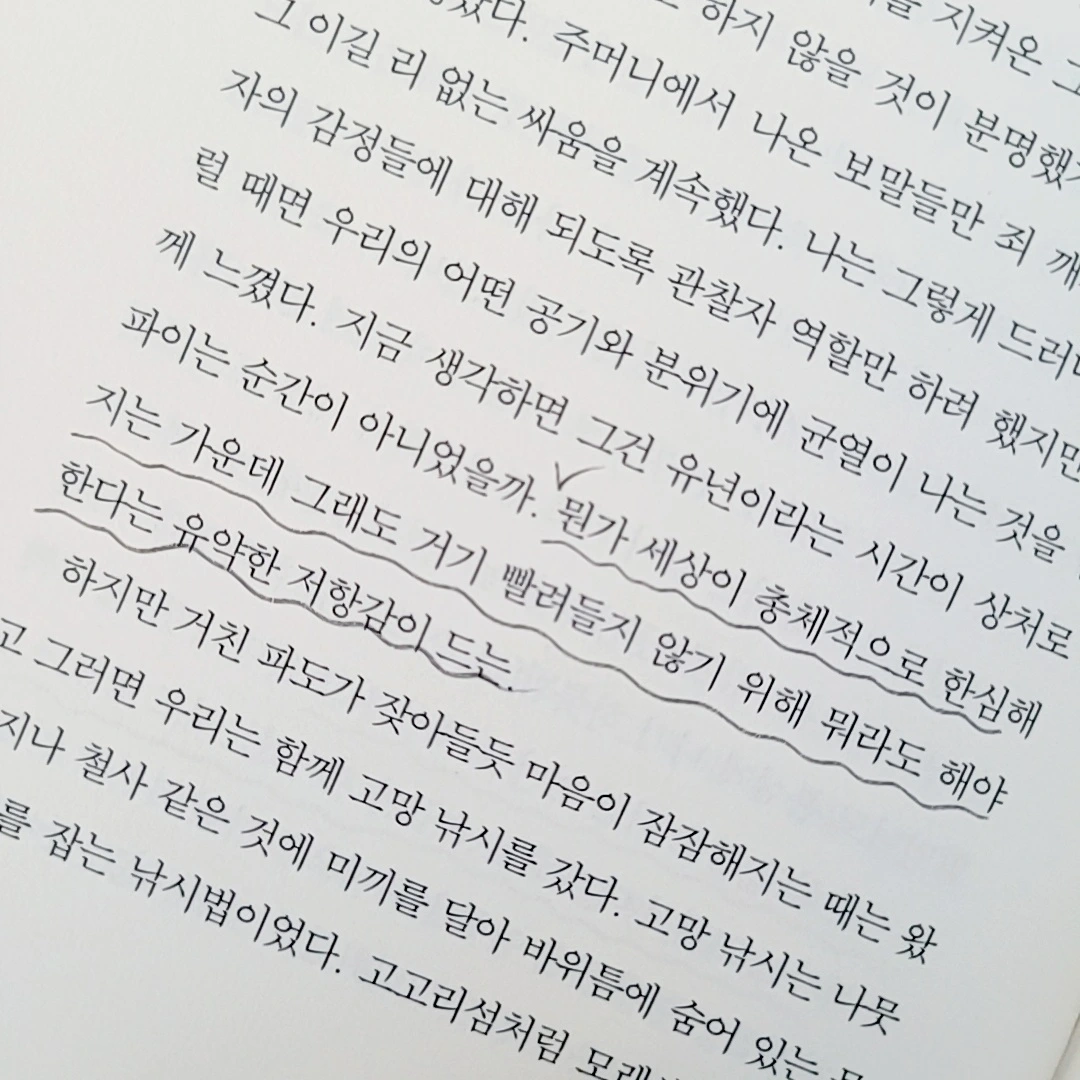 지켜온
하지 않을 것이 분명했
주머니에서 나온 보말들만 죄 깨
그 이길 리 없는 싸움을 계속했다. 나는 그렇게 드러
자의 감정들에 대해 되도록 관찰자 역할만 하려 했지만
럴 때면 우리의 어떤 공기와 분위기에 균열이 나는 것을
께 느꼈다. 지금 생각하면 그건 유년이라는 시간이 상처로
파이는 순간이 아니었을까. 뭔가 세상이 총체적으로 한심해
지는 가운데 그래도 거기 빨려들지 않기 위해 뭐라도 해야
한다는 유약한 저항감이 드는.
하지만 거친 파도가 잦아들듯 마음이 잠잠해지는 때는 왔
고 그러면 우리는 함께 고망 낚시를 갔다. 고망 낚시는 나뭇
지나 철사 같은 것에 미끼를 달아 바위틈에 숨어 있는
를 잡는 낚시법이었다. 고고리섬처럼 모래